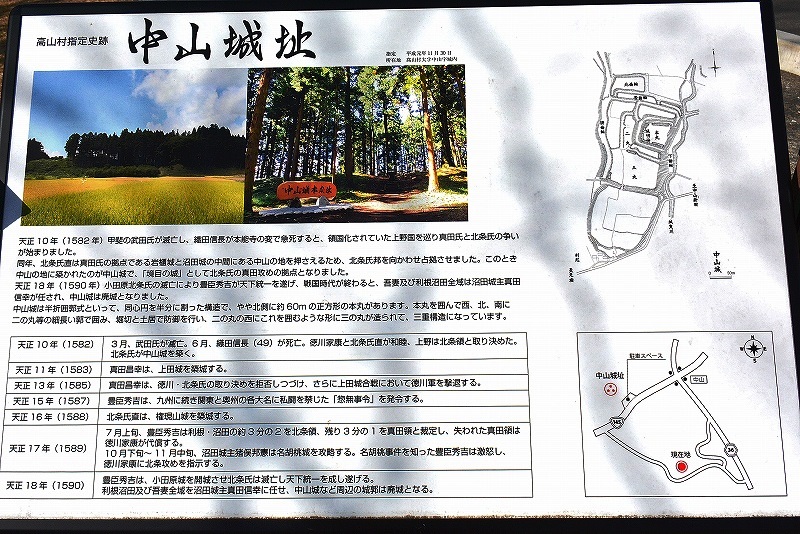 高山村指定史跡
中山城址
指定 平成元年11月30日
所在地 高山村大字中山字城内
中山城本丸址
天正10年（1582年）甲斐の武田氏が滅亡し、織田信長が本能寺の変で急死すると、領国化されていた上野国を巡り真田氏と北条氏の争い
が始まりました。
同年、北条氏直は真田氏の拠点である岩櫃城と沼田城の中間にある中山の地を押さえるため、北条氏邦を向かわせ占拠させました。このとき
中山の地に築かれたのが中山城で、「境目の城」として北条氏の真田攻めの拠点となりました。
天正18年（1590年）小田原北条氏の滅亡により豊臣秀吉が天下統一を遂げ、戦国時代が終わると、吾妻及び利根沼田全域は沼田城主真田
信幸が任され、中山城は廃城となりました。
中山城は半折囲郭式といって、同心円を半分に割った構造で、やや北側に約60mの正方形の本丸があります。本丸を囲んで西、北、南に
二の丸等の細長い郭で囲み、堀切と土居で防御を行い、二の丸の西にこれを囲むような形に三の丸が造られて、三重構造になっています。
天正10年（1582）
3月、武田氏が滅亡。6月、織田信長（49）が死亡。徳川家康と北条氏直が和睦、上野は北条領と取り決めた。
北条氏が中山城を築く。
天正11年（1583）
真田昌幸は、上田城を築城する。
天正13年（1585）
真田昌幸は、徳川・北条氏の取り決めを拒否しつづけ、さらに上田城合戦において徳川軍を撃退する。
天正15年（1587）
豊臣秀吉は、九州に続き関東と奥州の各大名に私闘を禁じた「惣無事令」を発令する。
天正16年（1588）
北条氏直は、権現山城を築城する。
天正17年（1589）
7月上旬、豊臣秀吉は利根・沼田の約3分の2を北条領、残り3分の1を真田領と裁定し、失われた真田領は
徳川家康が代償する。
10月下旬～11月中旬、沼田城主猪俣邦憲は名胡桃城を攻略する。名胡桃事件を知った豊臣秀吉は激怒し、
徳川家康に北条攻めを指示する。
天正18年（1590）
豊臣秀吉は、小田原城を開城させ北条氏は滅亡し天下統一を成し遂げる。
利根沼田及び吾妻全域を沼田城主真田信幸に任せ、中山城など周辺の城郭は廃城となる。
本丸
二ノ丸
三ノ丸
中山城
駐車スペース
中山城址
中山
145
36
現在地
N